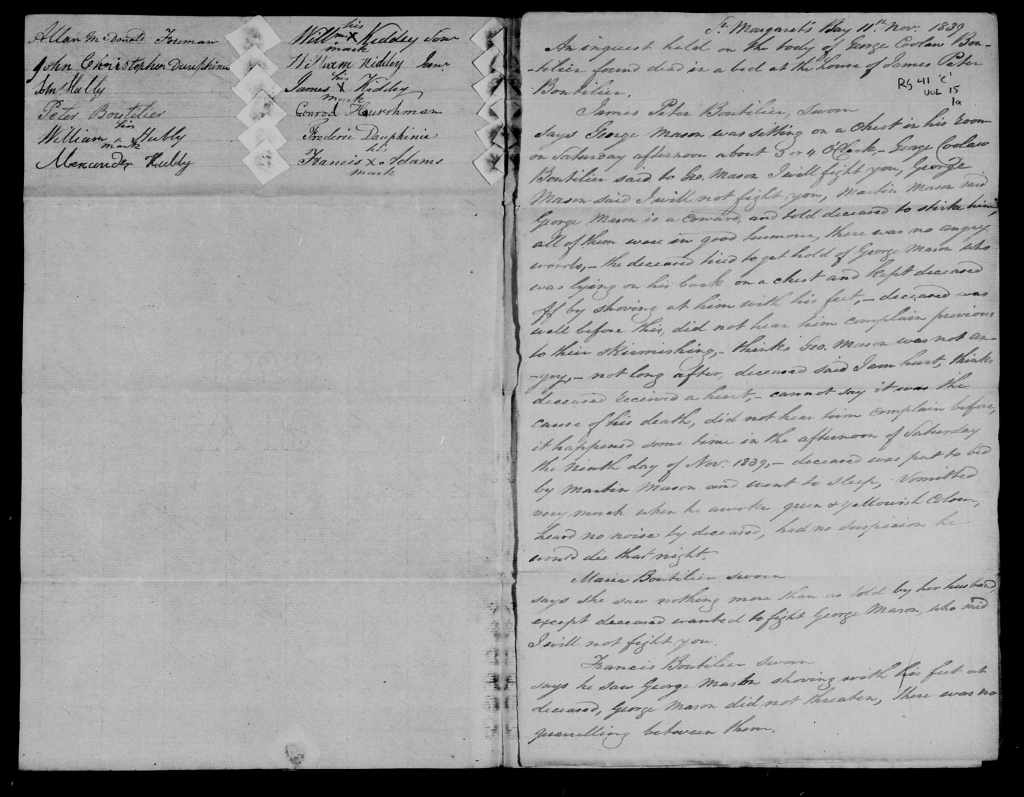 Allan McDonald Foreman
John Christopher Dauphinie
John Hubly
Peter Boutilier
his
William x Hubly
mark
Alexander Hubly
his
Will'm x Kidley Sen'r
mark
William Kidley Jun'r
his
James x Kidley
mark
Conrod Hurshman
Frederic Dauphinie
his
Francis x Adams
mark
St. Margaret's Bay 11th Nov. 1839
An inquest held on the body of George Coolaw Bou-
tilier found dead in a bed at the house of James Peter
Boutilier,
RG 41 "C"
VOL 15
1a
James Peter Boutilier, Sworn
says George Mason was sitting on a Chest in his Room
on Saturday afternoon about 3 or 4 O'Clock,- George Coolaw
Boutilier said to Geo. Mason I will fight you, George
Mason said I will not fight you, Martin Mason said
George Mason is a Coward, and told deceased to strike him,
all of them were in good humour, there was no angry
words,- the deceased tried to get hold of George Mason who
was lying on his back on a chest and kept deceased
off by shoving at him with his feet,- deceased was
well before this, did not hear him complain previous
to their skirmishing,- thinks Geo. Mason was not an-
-gry,- not long after, deceased said I am hurt, thinks
deceased received a heart,- cannot say it was the
cause of his death, did not hear him complain before,
it happened some time in the afternoon of Saturday
the ninth day of Nov. 1839,- deceased was put to bed
by Martin Mason and went to sleep, Vomitted
very much when he awoke green & yellowish Colour,
heard no noise by deceased, had no suspicion he
would die that night.
Maria Boutilier sworn
says she saw nothing more than as told by her husband,
except deceased wanted to fight George Mason, who said
I will not fight you.
Francis Boutilier sworn
says he saw George Mason shoving with his feet at
deceased, George Mason did not threaten, there was no
quarrelling between them.